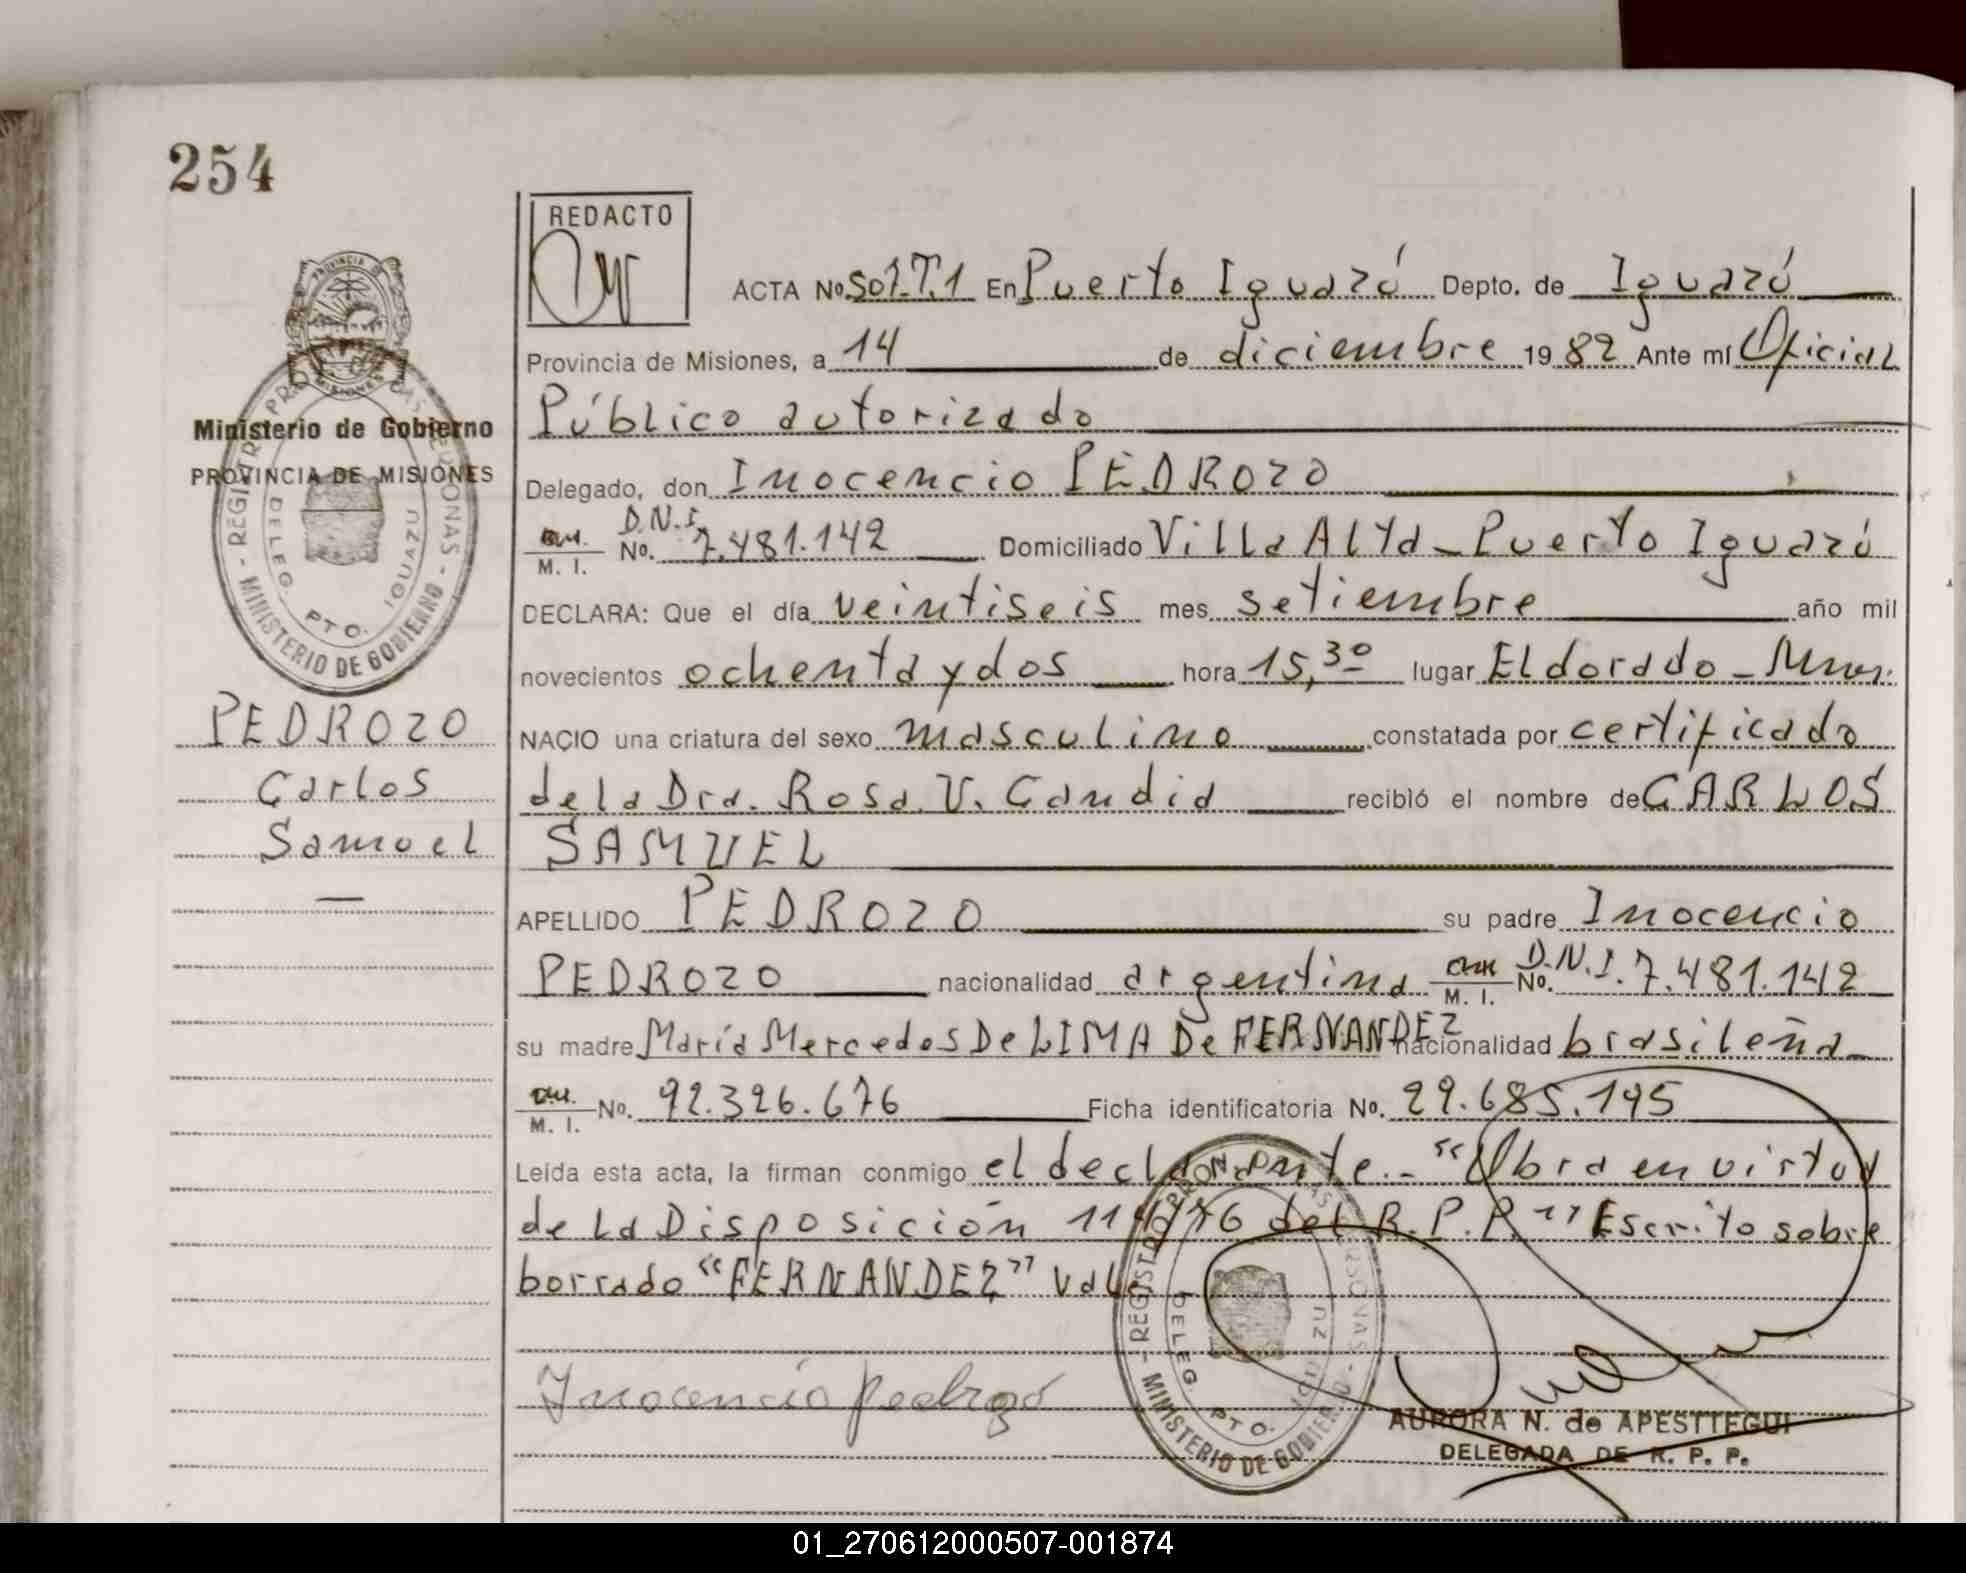 254
REDACTO
ACTA No. 501.T.1 En Puerto Iguazú Depto. de Iguazú
Provincia de Misiones, a 14 de diciembre 1982 Ante mí Oficial
Público autorizado
Delegado, don Inocencio PEDROZO
M. I. No. D.N.I. 7.481.142 Domiciliado Villa Alta - Puerto Iguazú
DECLARA: Que el día veintiseis mes setiembre año mil
novecientos ochenta y dos hora 15,30 lugar Eldorado - Mnes.
NACIO una criatura del sexo masculino constatada por certificado
de la Dra. Rosa V. Candia recibió el nombre de CARLOS
SAMUEL
APELLIDO PEDROZO su padre Inocencio
PEDROZO nacionalidad argentina M. I. No. D.N.I. 7.481.142
su madre María Mercedes De LIMA De FERNANDEZ nacionalidad brasileña
M. I. No. 92.326.676 Ficha identificatoria No. 29.685.195
Leída esta acta, la firman conmigo el declarante.- "Obra en virtud
de la Disposición 114/76 del R.P.P." Escrito sobre
borrado "FERNANDEZ" vale
Inocencio Pedrozo
AURORA N. de APESTTEGUI
DELEGADA DE R. P. P.
PROVINCIA DE MISIONES
Ministerio de Gobierno
PROVINCIA DE MISIONES
DELEG. PTO. IGUAZU
MINISTERIO DE GOBIERNO
PEDROZO
Carlos
Samuel
DELEG. PTO. IGUAZU
MINISTERIO DE GOBIERNO
01_270612000507-001874